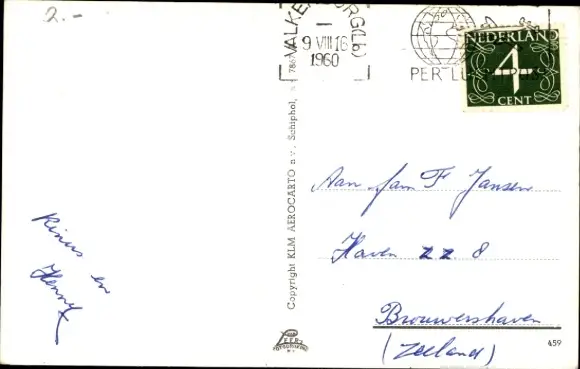 2.-
VALKENBURG (Lb)
9 VIII 16
1960
PER LU
NEDERLAND
4
CENT
Copyright KLM AEROCARTO n.v. Schiphol,
Aan fam F Jansen
Haven ZZ 8
Brouwershaven
(Zeeland)
Rinus en
Henny
459